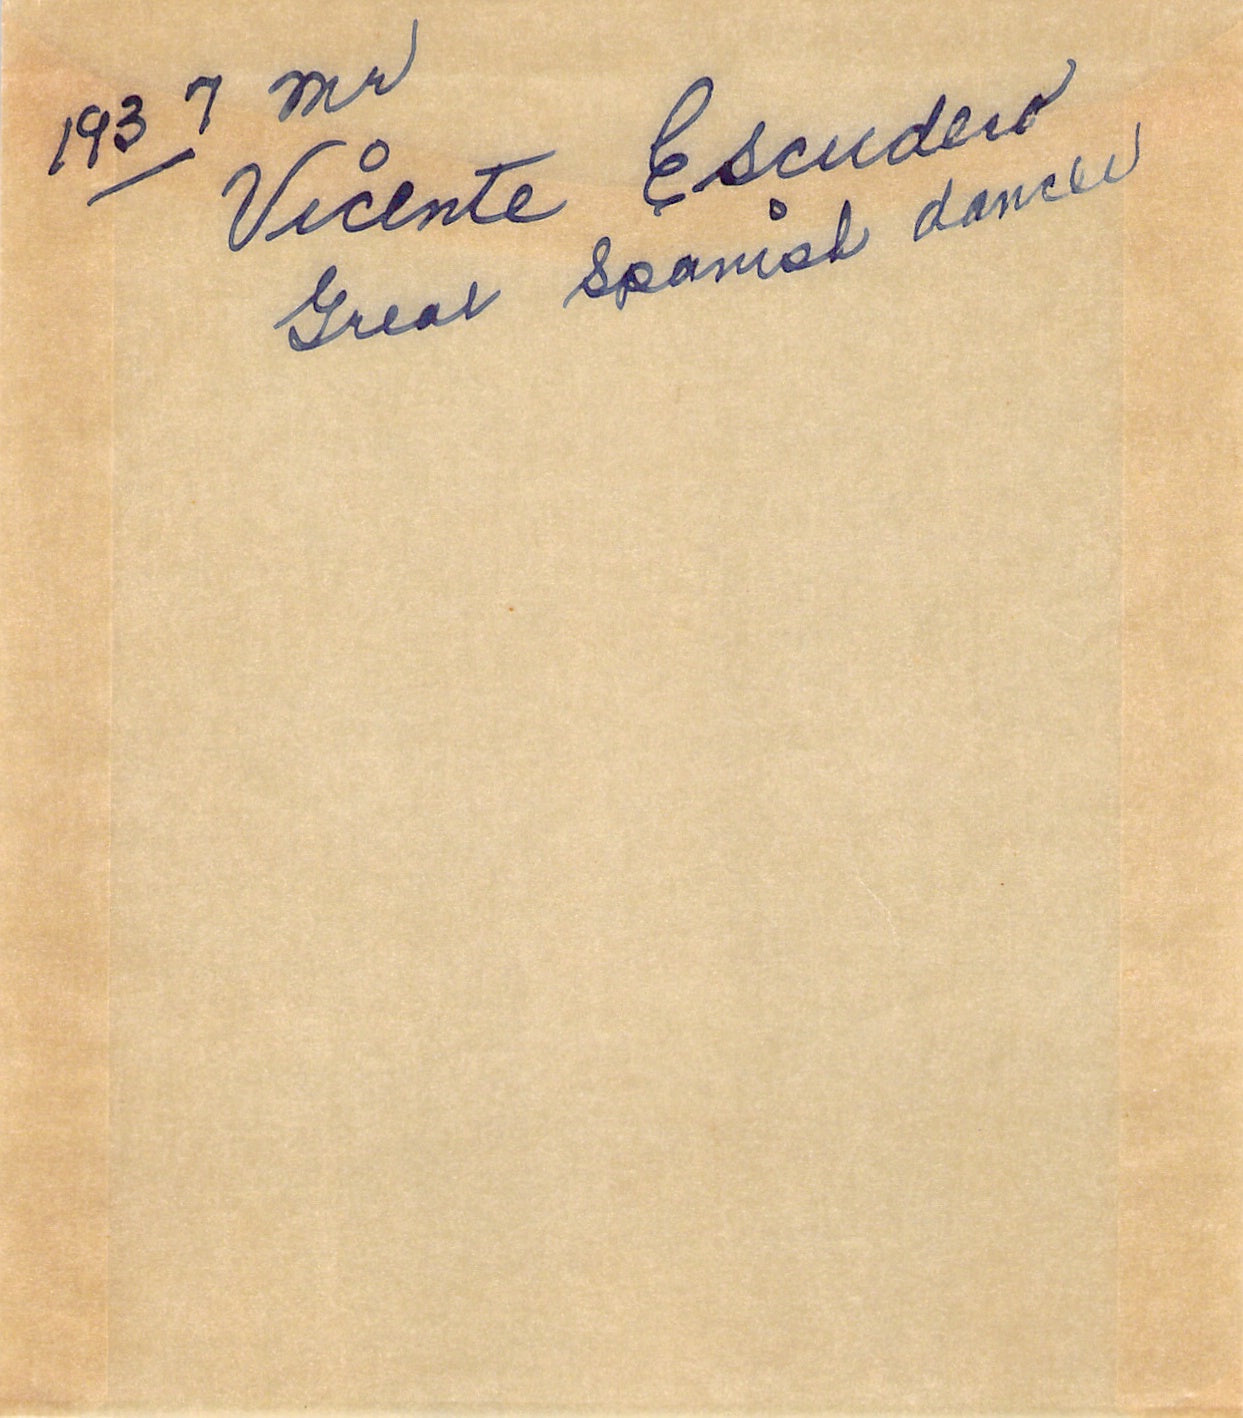 1937 Mr
Vicente Escudero
Great Spanish dancer